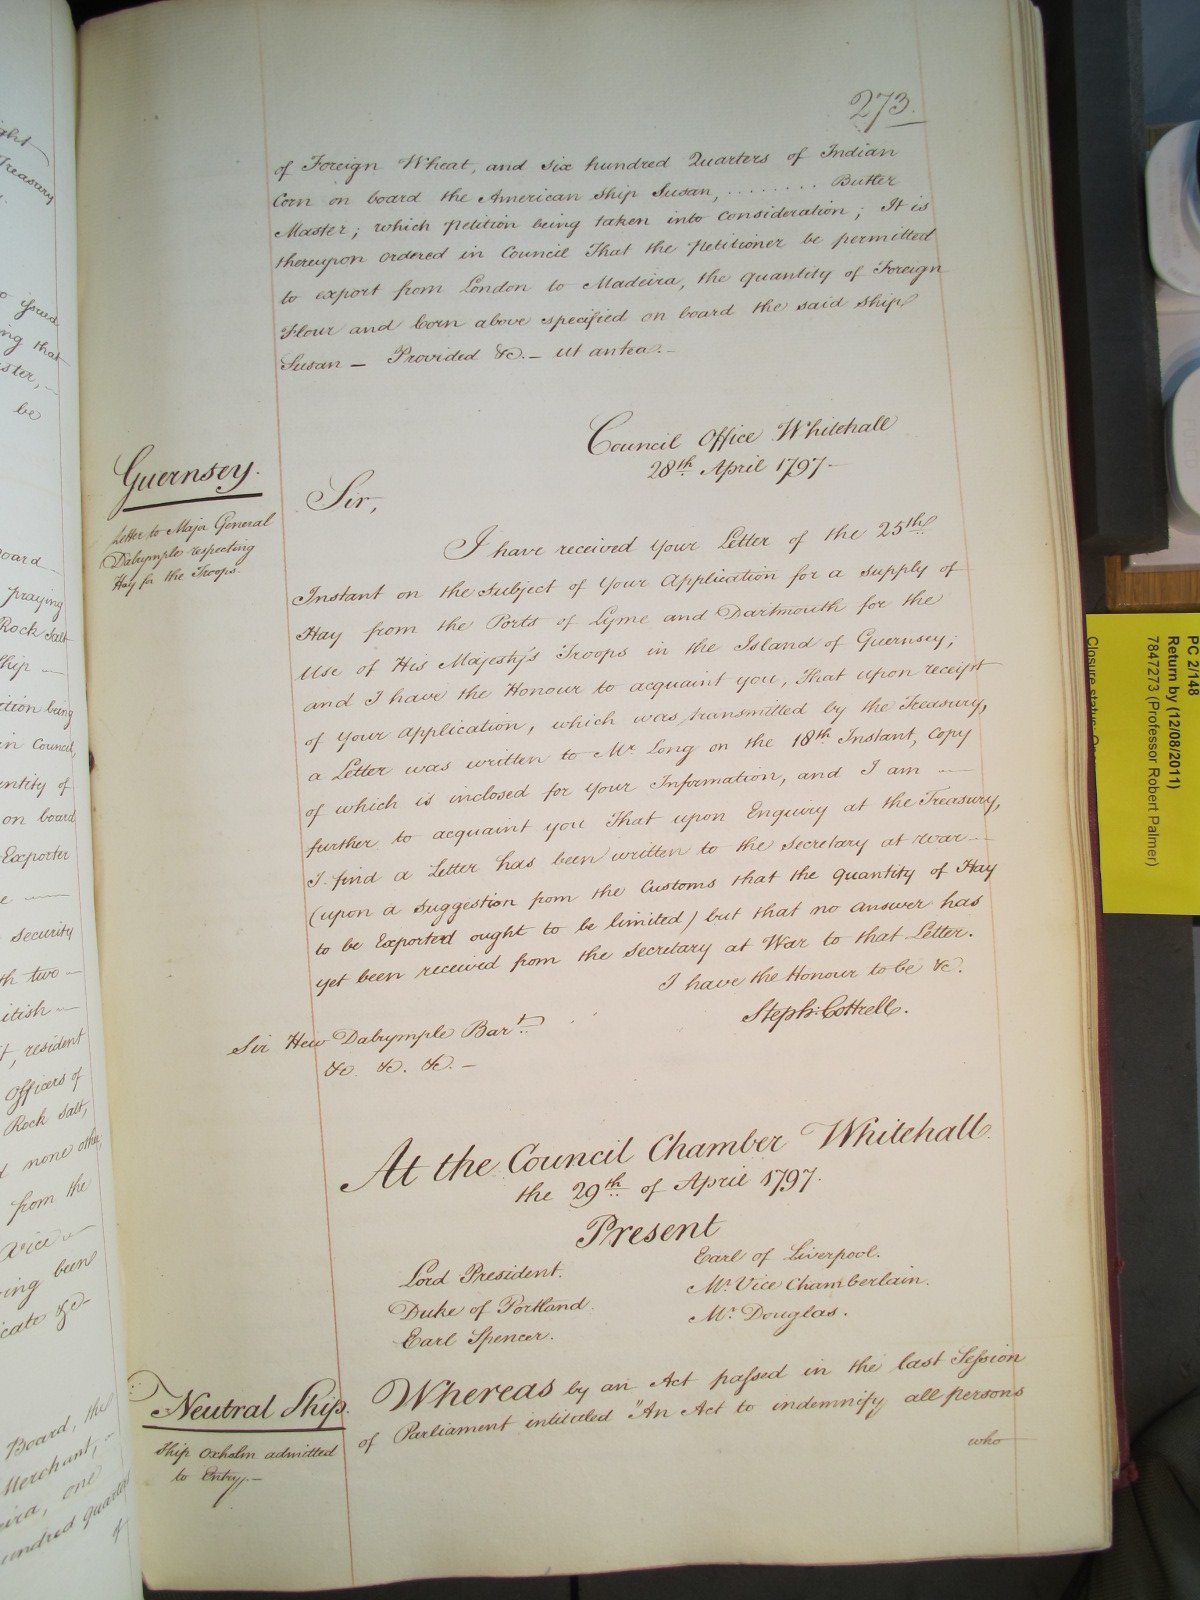 273.
of Foreign Wheat, and six hundred Quarters of Indian
Corn on board the American Ship Susan, ........ Butler
Master; which Petition being taken into consideration; It is
thereupon ordered in Council That the Petitioner be permitted
to export from London to Madeira, the quantity of Foreign
Flour and Corn above specified on board the said Ship
Susan — Provided &c. — ut antea. —
Council Office Whitehall
28th April 1797 —
Guernsey.
Letter to Major General
Dalrymple respecting
Hay for the Troops.
Sir,
I have received your Letter of the 25th
Instant on the Subject of your Application for a supply of
Hay from the Ports of Lyme and Dartmouth for the
Use of His Majesty's Troops in the Island of Guernsey;
and I have the Honour to acquaint you, That upon receipt
of your Application, which was transmitted by the Treasury,
a Letter was written to Mr. Long on the 18th Instant, Copy
of which is inclosed for your Information, and I am —
further to acquaint you That upon Enquiry at the Treasury,
I find a Letter has been written to the Secretary at War —
(upon a Suggestion from the Customs that the quantity of Hay
to be Exported ought to be limited) but that no answer has
yet been received from the Secretary at War to that Letter.
I have the Honour to be &c.
Steph: Cottrell.
Sir Hew Dalrymple Bart.
&c. &c. &c. —
At the Council Chamber Whitehall
the 29th of April 1797.
Present
Lord President.
Duke of Portland.
Earl Spencer.
Earl of Liverpool.
Mr. Vice Chamberlain.
Mr. Douglas.
Neutral Ship.
Ship Oxholm admitted
to Entry. —
Whereas by an Act passed in the last Session
of Parliament intituled "An Act to indemnify all persons
who
ght
Treasury
issued
ng that
ster, —
be
oard
praying
Rock Salt
Ship —
tition being
in Council,
antity of
on board
Exporter
e —
security
th two —
itish —
t, resident
Officers of
Rock Salt,
none other
from the
vice
ving been
cate &c
Board, the
Merchant, —
eira, one
undred quarters
of
PC 2/148
Return by (12/08/2011)
7847273 (Professor Robert Palmer)
Closure status: